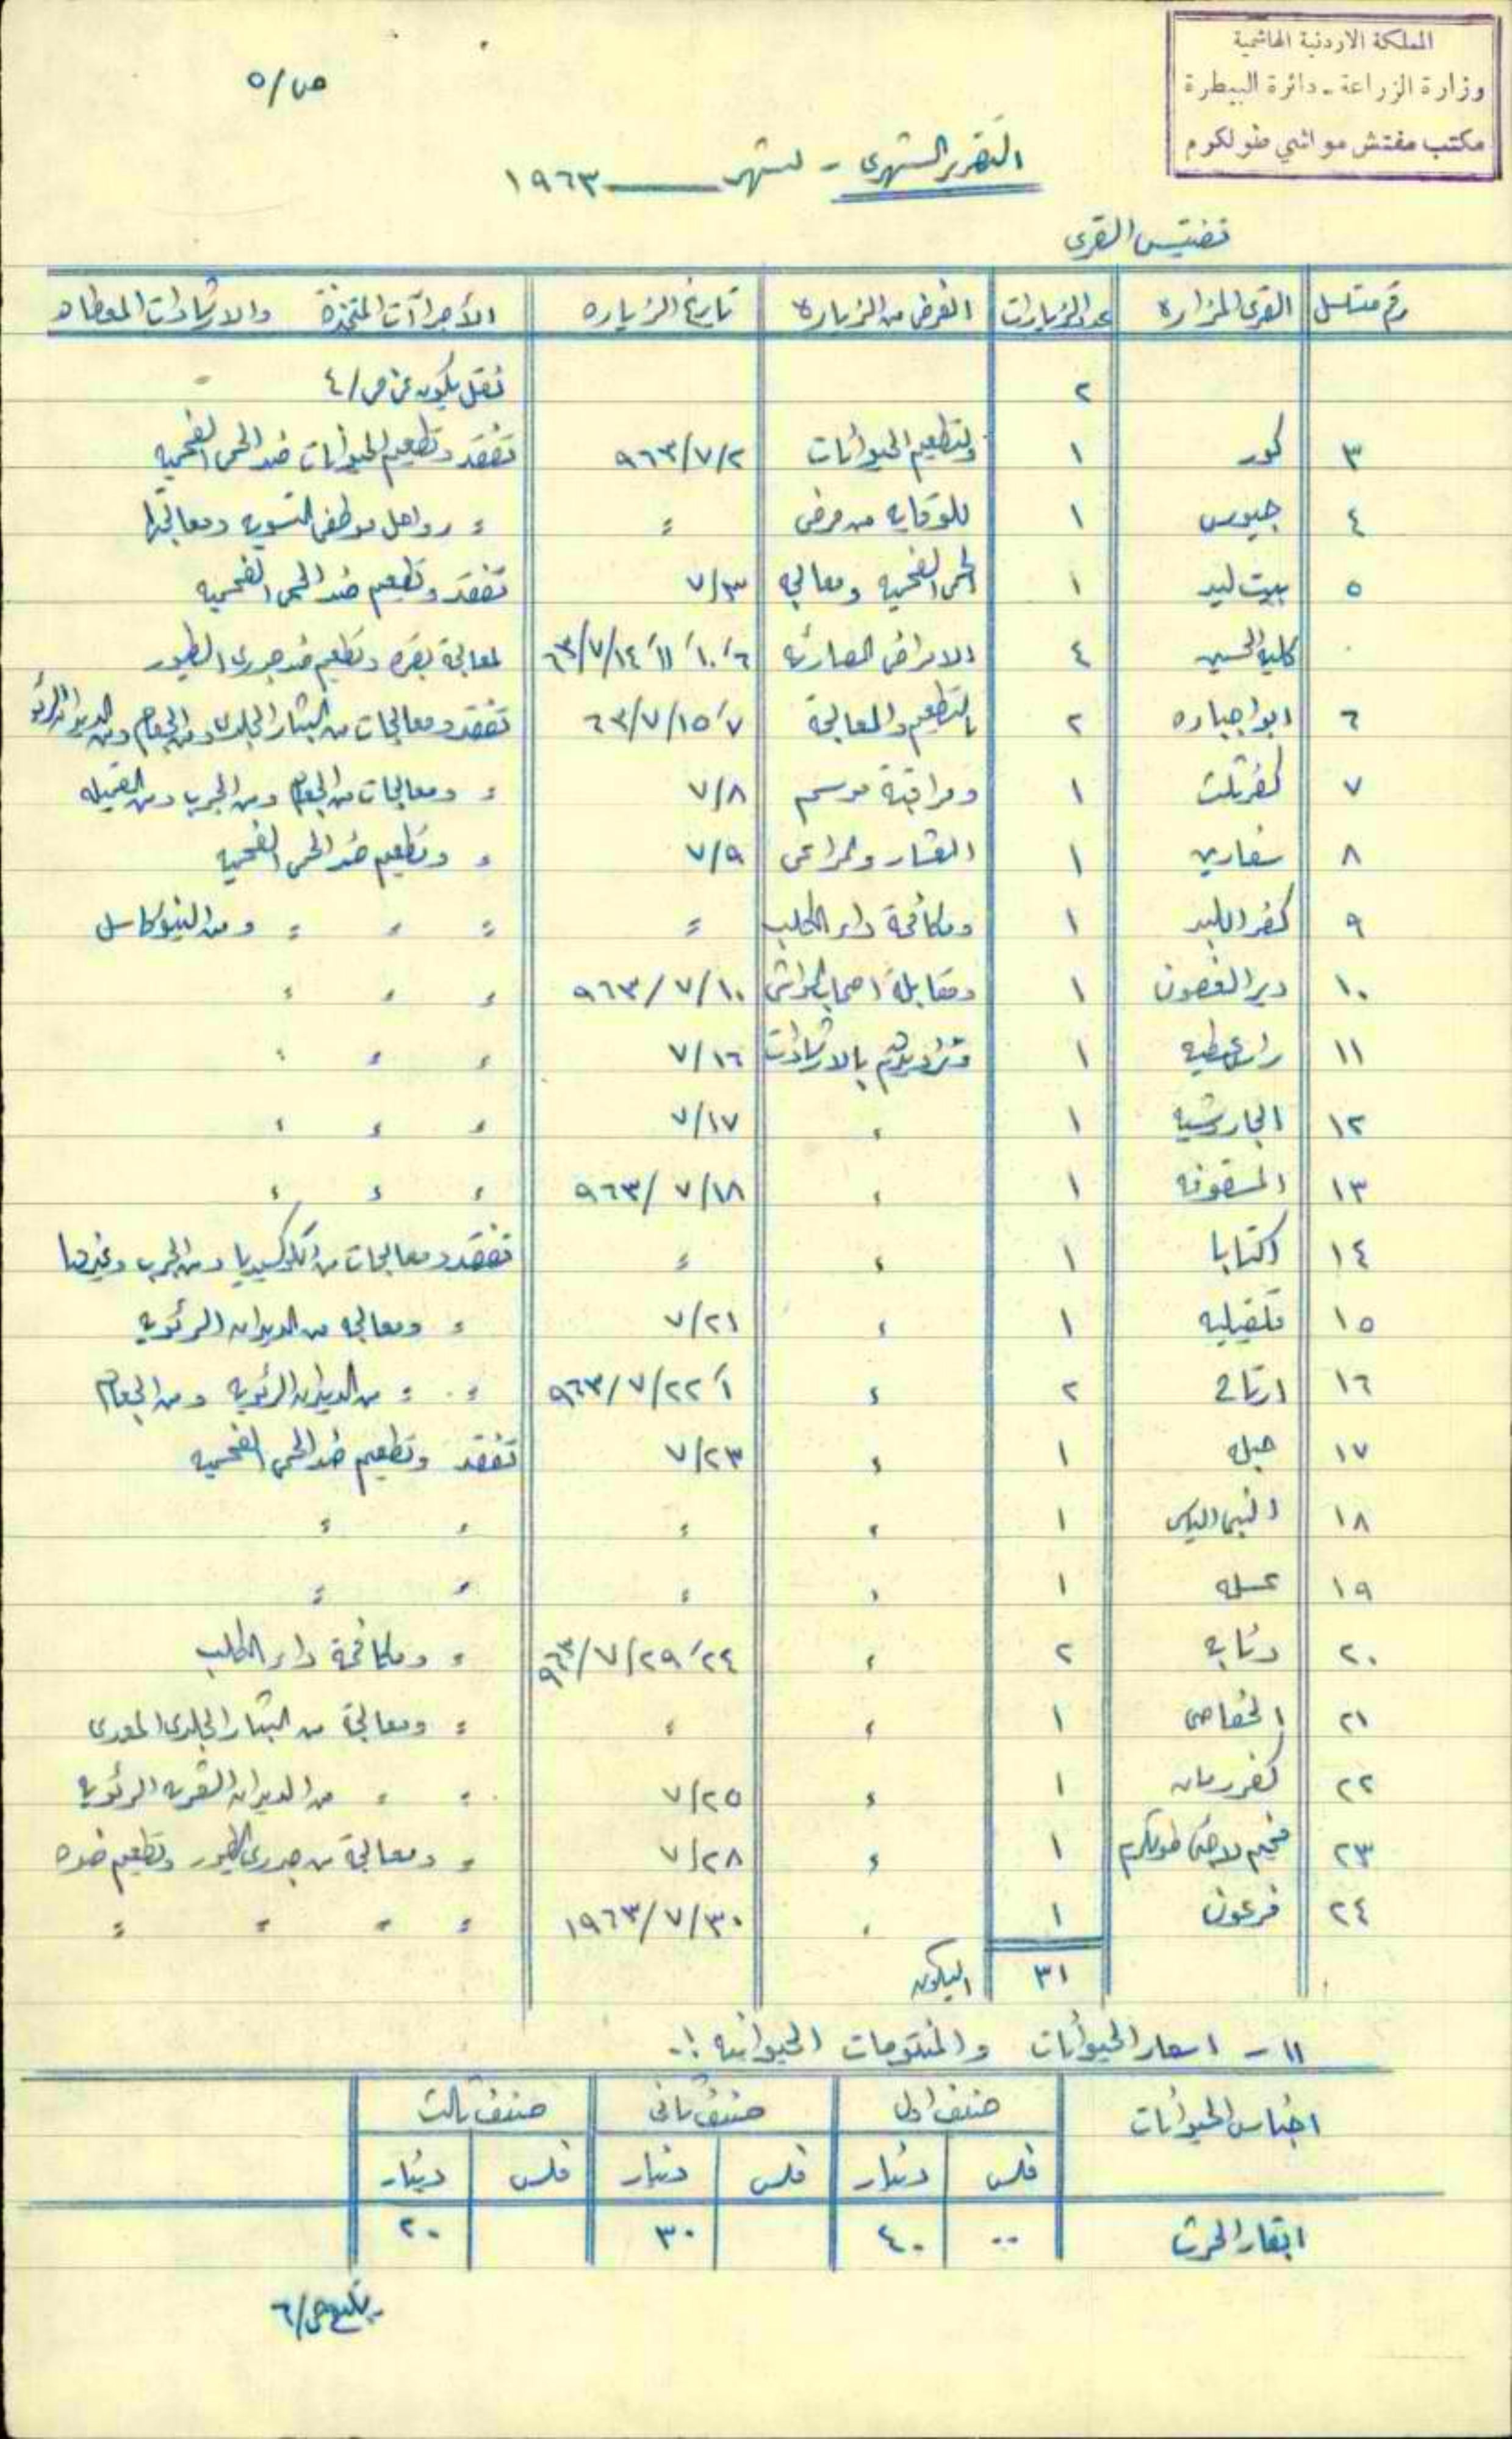 المملكة الاردنية الهاشمية
وزارة الزراعة - دائرة البيطرة
مكتب مفتش مواشي طولكرم
ص/٥
التقرير الشهري - لشهر ــــــ ١٩٦٣
تفتيش القرى
رقم متسلسل القرى المزاره عدد الزيارات الغرض من الزيارة تاريخ الزياره الأجراآت المتخذة والارشادات المعطاه
٢ نقل يكون عن ص/٤
٣ كور ١ لتطعيم الحيوانات ٩٦٣/٧/٢ تفقد وتطعيم الحيوانات ضد الحمى الفحميه
٤ جيوس ١ للوقايه من مرض " " موظفي التسويه ومعالجتها
٥ بيت ليد ١ الحمى الفحميه ومعالجه ٧/٣ تفقد وتطعيم ضد الحمى الفحميه
كلية الحسين ٤ الامراض الطارئه ٦، ١٠، ١١، ٦٣/٧/١٤ لمعالجة بقره وتطعيم ضد جدري الطيور
٦ ابو اجباره ٢ بالتطعيم والمعالجة ٧، ٦٣/٧/١٥ تفقد ومعالجات من البثار الجلدي ومن الجعام ومن الديدان الرئويه
٧ كفر ثلث ١ ومراقبة موسم ٧/٨ " ومعالجات من الجعام ومن الجرب ومن
٨ سفارين ١ العشار والمراعي ٧/٩ " وتطعيم ضد الحمى الفحميه
٩ كفر اللبد ١ ومكافحة داء الكلب " " " " ومن النيوكاسل
١٠ دير الغصون ١ ومقابلة اصحاب المواشي ٩٦٣/٧/١٠ " " "
١١ راس عطيه ١ وتزويدهم بالارشادات ٧/١٦ " " "
١٢ الجاروشيه ١ " ٧/١٧ " " "
١٣ المسقوفه ١ " ٩٦٣/٧/١٨ " " "
١٤ اكتابا ١ " " تفقد ومعالجات من الكوكسيديا ومن الجرب وغيرها
١٥ قلقيليه ١ " ٧/٢١ " ومعالجه من الديدان الرئويه
١٦ ارتاح ٢ " ١، ٩٦٣/٧/٢٢ " " من الديدان الرئويه ومن الجعام
١٧ حبله ١ " ٧/٢٣ تفقد وتطعيم ضد الحمى الفحميه
١٨ النبي الياس ١ " " " "
١٩ عسله ١ " " " "
٢٠ دنابه ٢ " ٢٤، ٩٦٣/٧/٢٩ " ومكافحة داء الكلب
٢١ الحفاصي ١ " " " ومعالجة من البثار الجلدي المعدي
٢٢ كفر رمان ١ " ٧/٢٥ " " من الديدان الشعريه الرئويه
٢٣ مخيم لاجئي طولكرم ١ " ٧/٢٨ " ومعالجة من جدري الطيور وتطعيم ضده
٢٤ فرعون ١ " ١٩٦٣/٧/٣٠ " " " "
٣١ اليكون
١١ - اسعار الحيوانات والمنتوجات الحيوانيه :-
اجناس الحيوانات صنف اول صنف ثاني صنف ثالث
فلس دينار فلس دينار فلس دينار
ابقار الحرث ٠٠ ٤٠ ٣٠ ٢٠
يتبع ص/٦